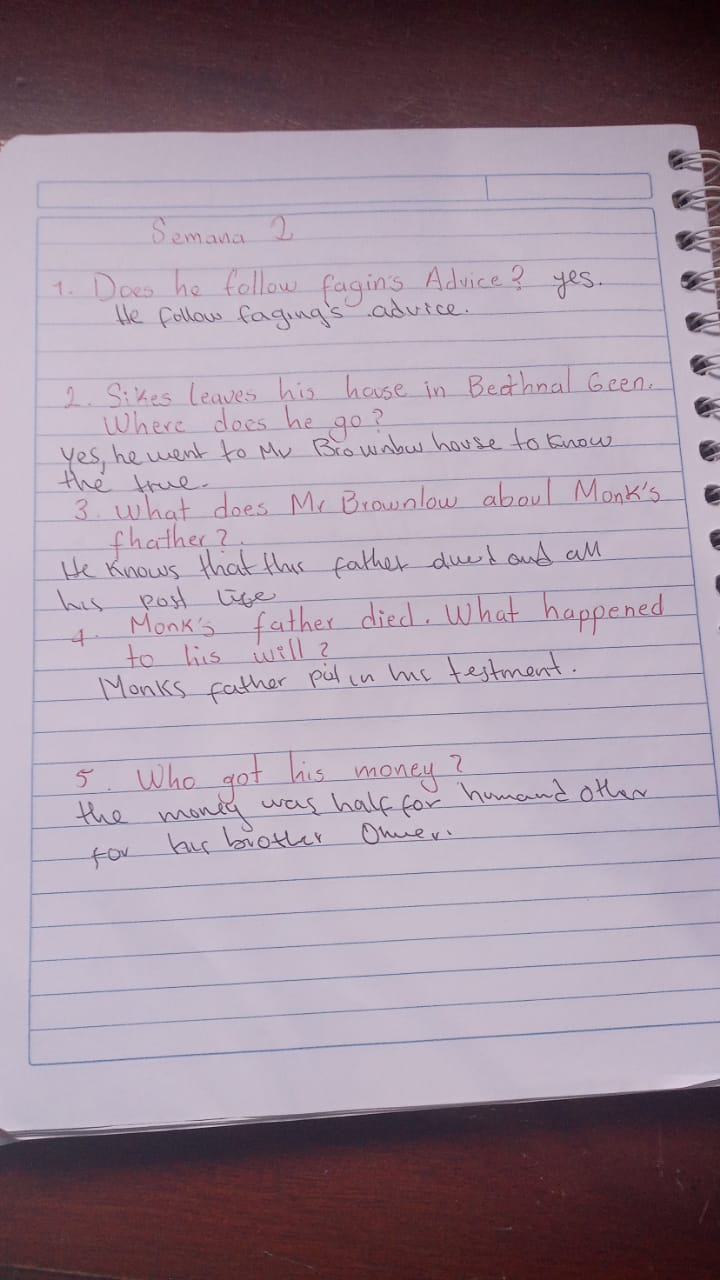 Semana 2
1. Does he follow fagin's Advice? yes.
He follow faging's advice.
2. Sikes leaves his house in Bethnal Geen.
Where does he go?
yes, he went to Mr Brownbw house to know
the true.
3. What does Mr Brownlow about Monk's
fhather?
He knows that this father died and all
his post life
4. Monk's father died. What happened
to his will?
Monks father put in his testment.
5. Who got his money?
the money was half for him and other
for his brother Oliver.